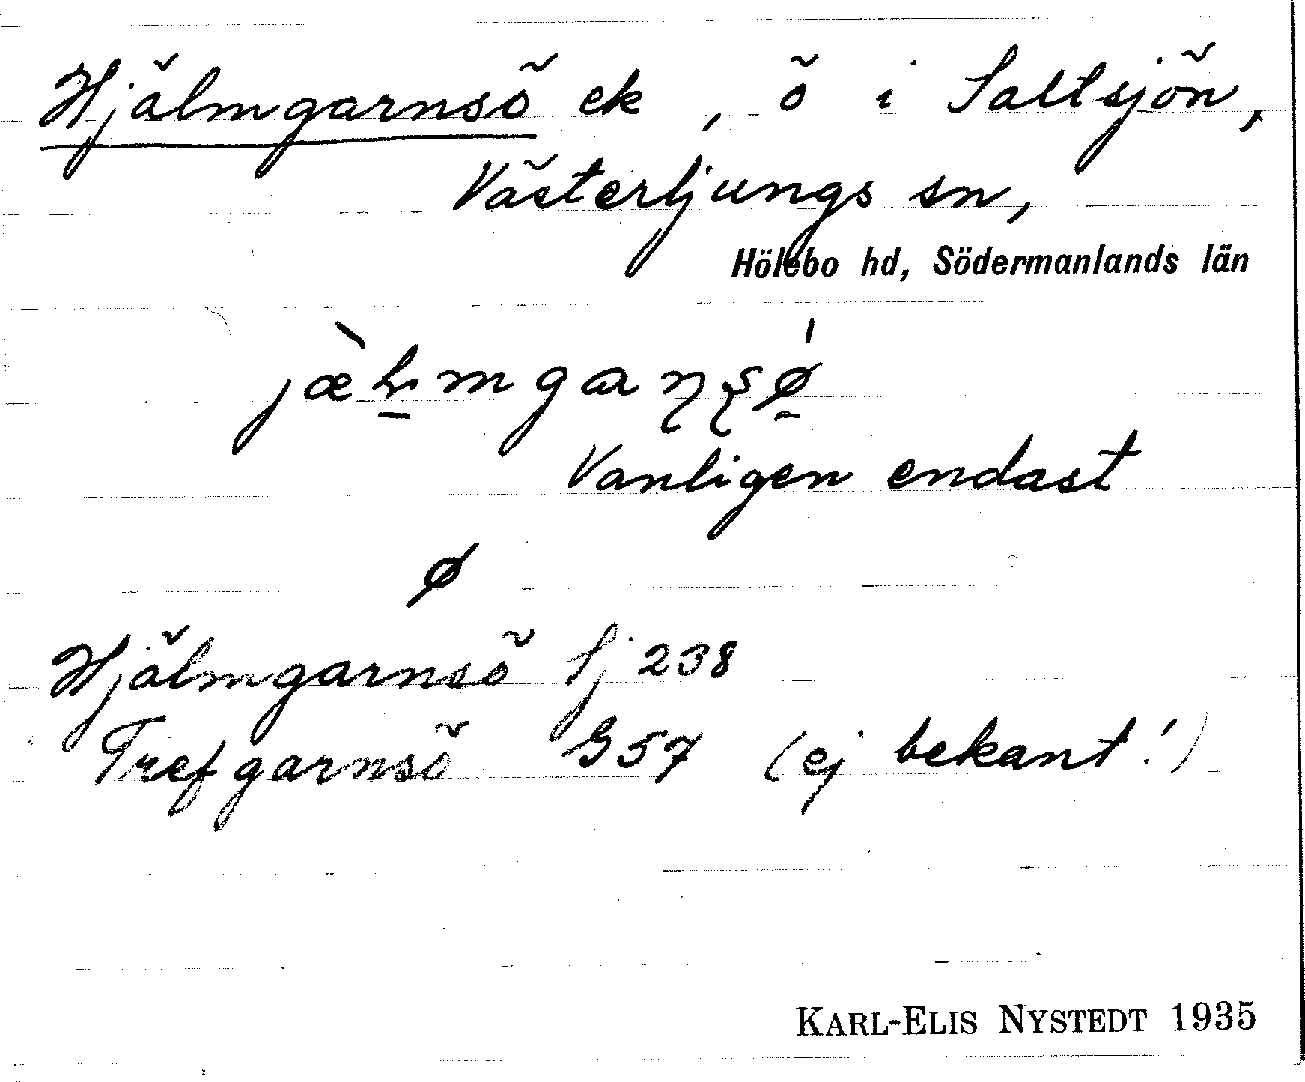 Hjälmgarnsö ek, ö i Saltsjön,
Västerljungs sn,
Hölebo hd, Södermanlands län
Vanligen endast
ø
Hjälmgarnsö Sj 238
Trefgarnsö G57 (ej bekant!)
KARL-ELIS NYSTEDT 1935